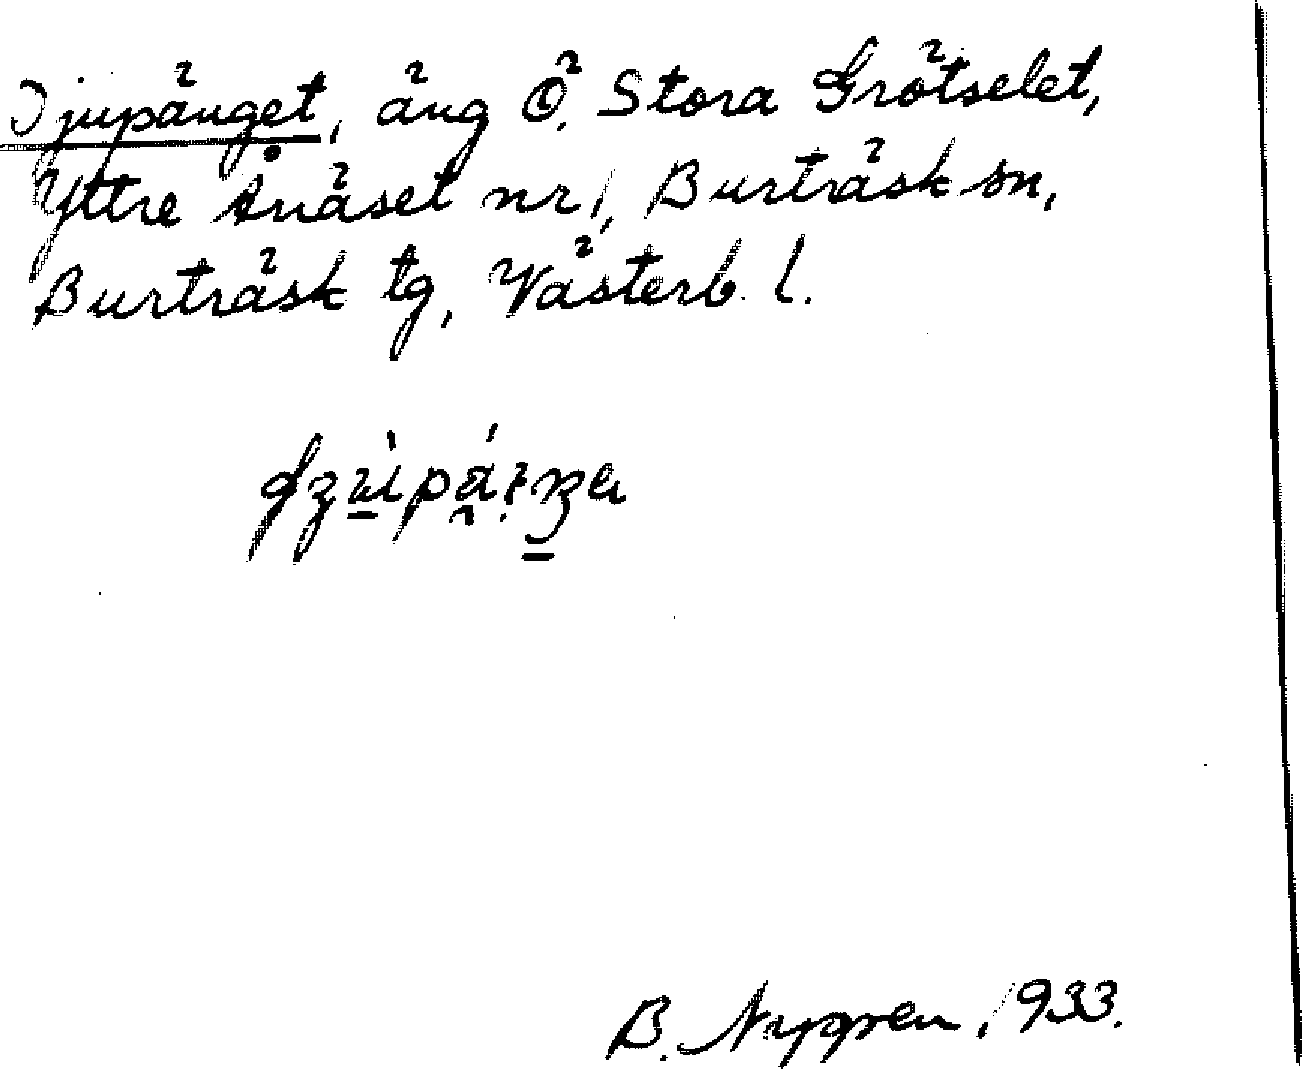 Djupänget, äng Ö. Stora Grötselet,
Yttre Ånäset nr 1, Burträsk sn,
Burträsk tg, Västerb. l.
B. Nygren, 1933.